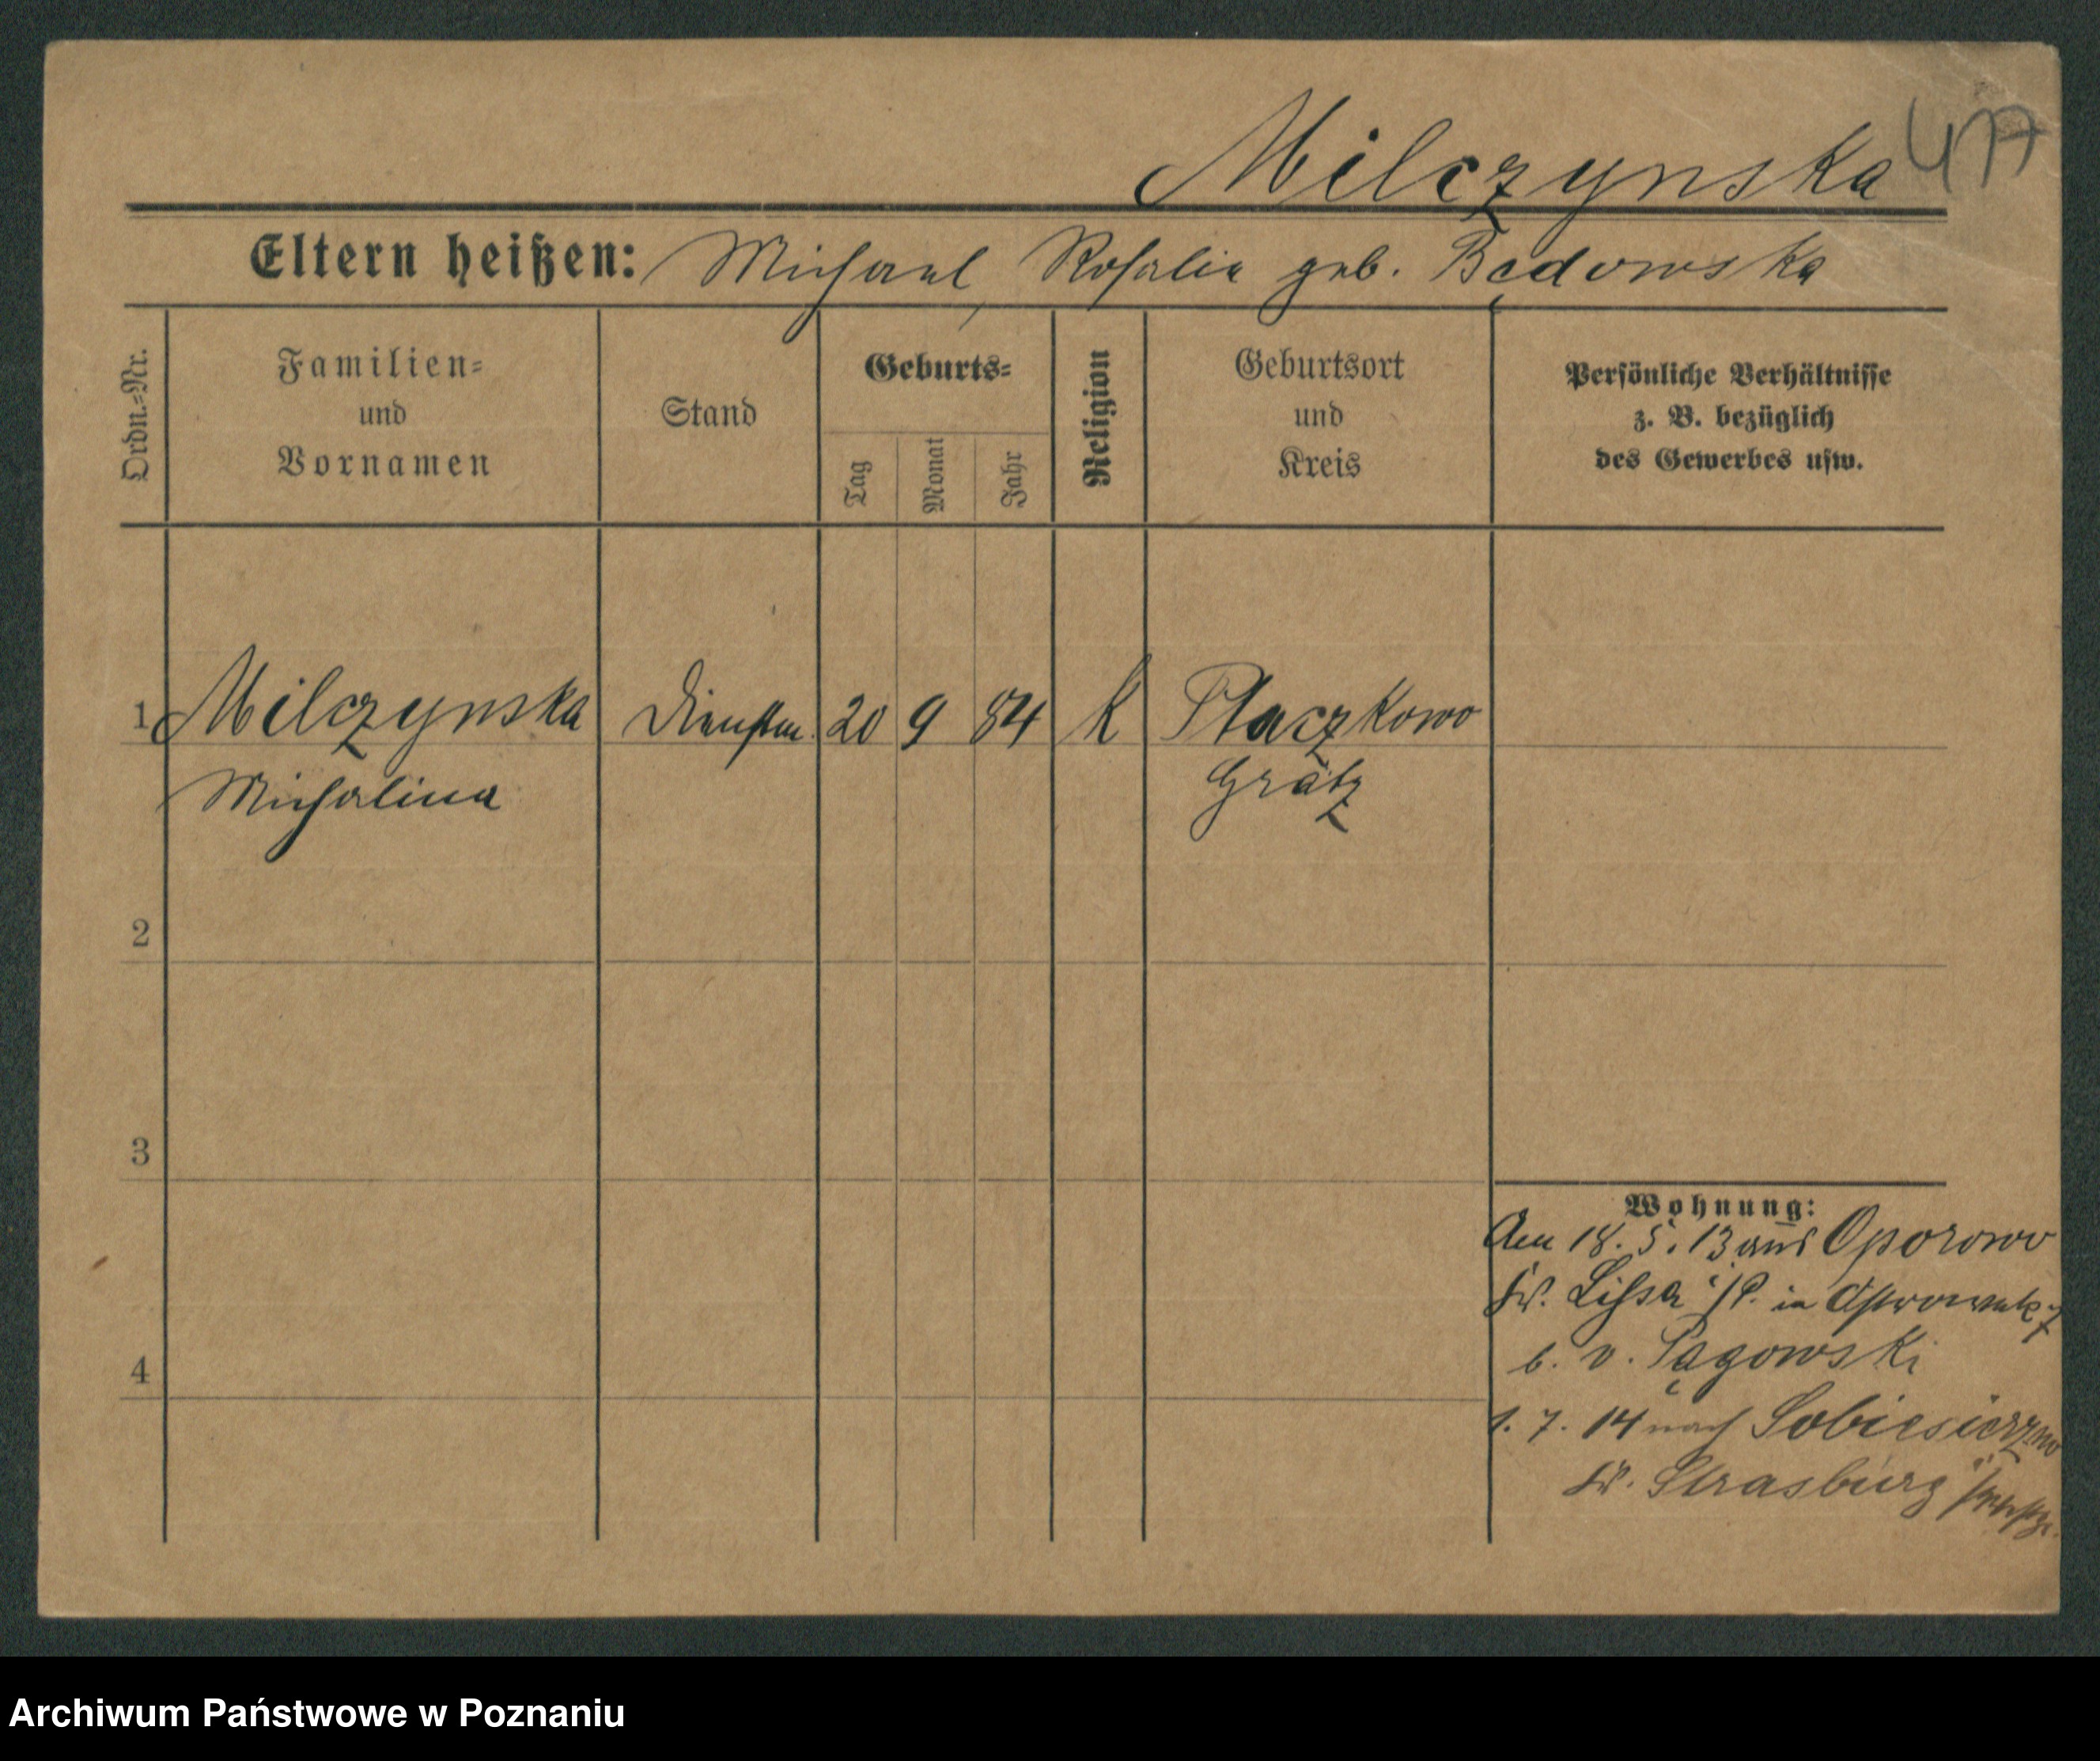 Milczynska 417
Eltern heißen: Michael, Rosalie geb. Będowska
Ordn.=Nr.
Familien=
und
Vornamen
Stand
Geburts=
Tag
Monat
Jahr
Religion
Geburtsort
und
Kreis
Persönliche Verhältnisse
z. B. bezüglich
des Gewerbes usw.
1 Milczynska Dienstm. 20 9 84 K Ptaczkowo
Michalina Grätz
2
3
4
Wohnung:
Am 18. 5. 13 aus Oporowo
Kr. Lissa i/P. in
b. v. Pągowski
1. 7. 14 nach Sobiesierzno
Kr. Strasburg
Archiwum Państwowe w Poznaniu